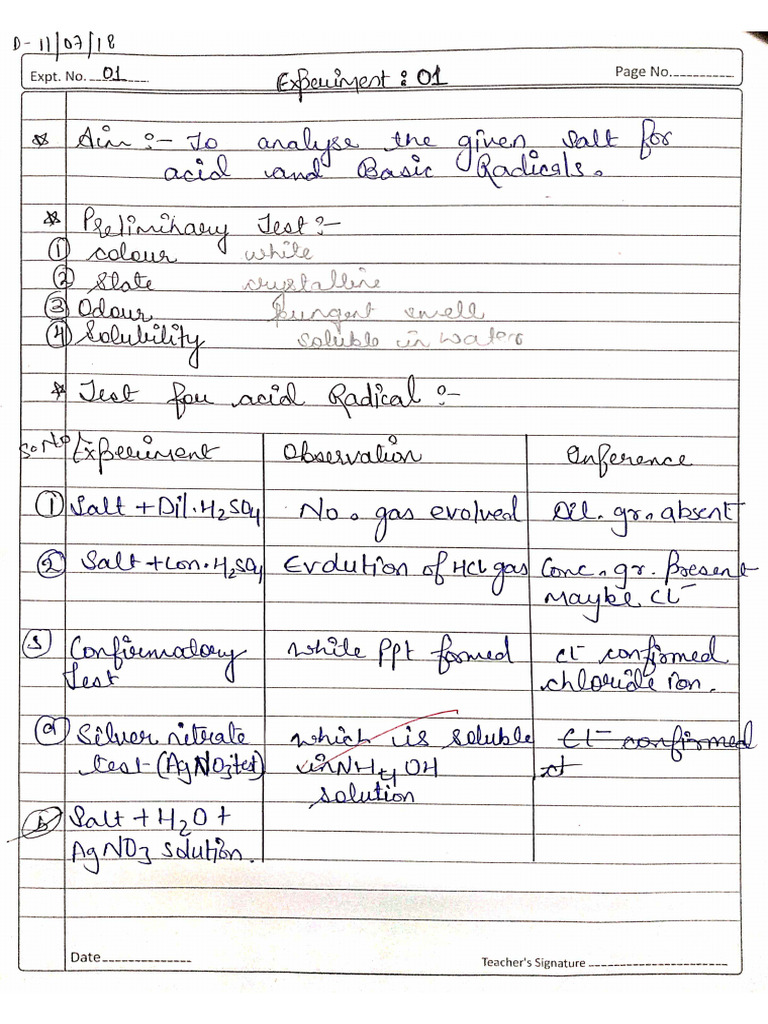 D- 11/07/18
Expt. No. 01 Experiment : 01 Page No.
* Aim :- To analyse the given salt for
acid and Basic Radicals.
* Preliminary Test :-
① colour white
② State crystalline
③ Odour Pungent smell
④ Solubility soluble in water
* Test for acid Radical :-
Sr. No Experiment Observation Inference
① Salt + Dil. H2SO4 No. gas evolved Dil. gr. absent
② Salt + Con. H2SO4 Evolution of HCl gas Conc. gr. Present
Maybe Cl-
③ Confirmatory White ppt formed Cl- confirmed
Test chloride ion.
ⓐ Silver nitrate which is soluble Cl- confirmed
test (AgNO3 test) in NH4OH
solution
ⓑ Salt + H2O +
AgNO3 solution.
Date Teacher's Signature